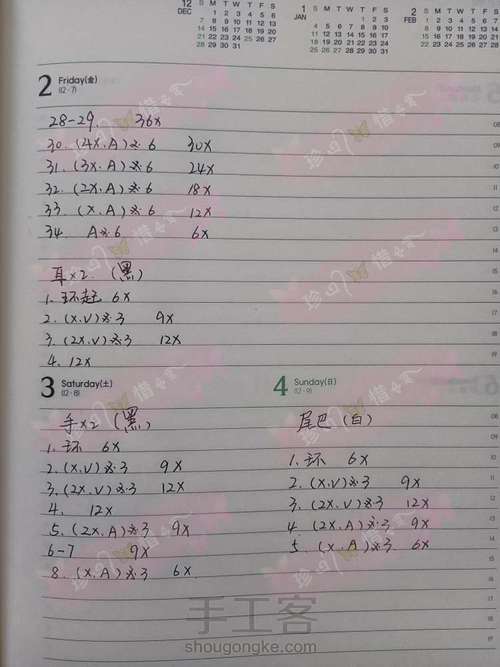 12 DEC
S M T W T F S
1 2 3 4 5 6
7 8 9 10 11 12 13
14 15 16 17 18 19 20
21 22 23 24 25 26 27
28 29 30 31
1 JAN
S M T W T F S
1 2 3
4 5 6 7 8 9 10
11 12 13 14 15 16 17
18 19 20 21 22 23 24
25 26 27 28 29 30 31
2 FEB
S M T W T F S
1 2 3 4 5 6 7
8 9 10 11 12 13 14
15 16 17 18 19 20 21
22 23 24 25 26 27 28
2 Friday(金)
(12·7)
28-29. 36x
30. (4x.A)※6 30x
31. (3x.A)※6 24x
32. (2x.A)※6 18x
33. (x.A)※6 12x
34. A※6 6x
耳×2. (黑)
1. 环起 6x
2. (x.v)※3 9x
3. (2x.v)※3 12x
4. 12x
3 Saturday(土)
(12·8)
手×2 (黑)
1. 环 6x
2. (x.v)※3 9x
3. (2x.v)※3 12x
4. 12x
5. (2x.A)※3 9x
6-7 9x
8. (x.A)※3 6x
4 Sunday(日)
(12·9)
尾巴 (白)
1. 环 6x
2. (x.v)※3 9x
3. (2x.v)※3 12x
4 (2x.A)※3 9x
5. (x.A)※3. 6x
手工客
shougongke.com